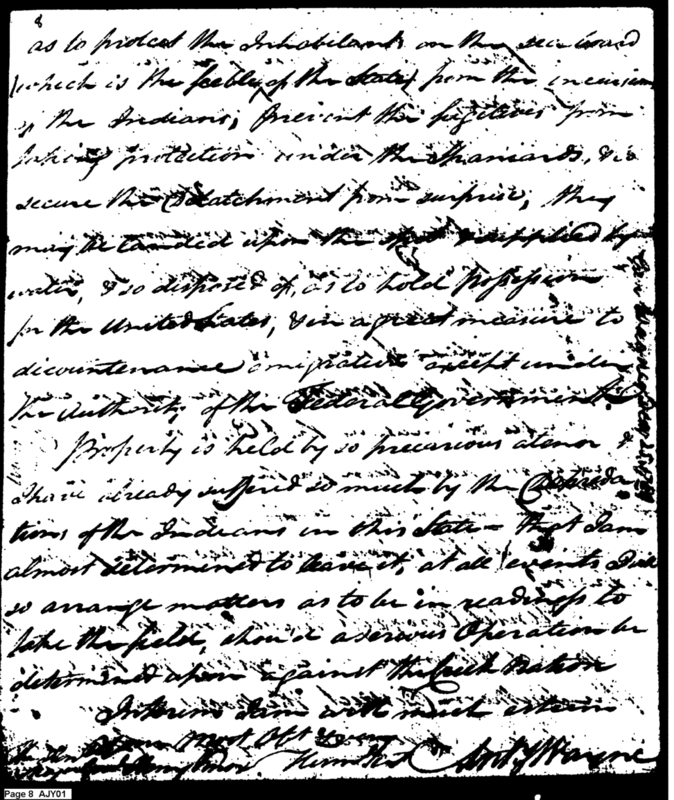 8
as to protect the Inhabitants on the sea board
(which is the feebly of the State) from the incursions
of the Indians, prevent the fugitives from
taking protection under the Spaniards, &
secure the Detatchment from surprise; they
may be landed upon the spot & supplied by
water, & so disposed of, as to hold Possession
for the United States, & in a great measure to
discountenance emigration except under
the Authority of the Federal Government.
Property is held by so precarious a tenor &
I have already suffered so much by the Depreda
tions of the Indians in this State - that I am
almost determined to leave it, at all events I will
so arrange matters as to be in readiness to
take the field, shou'd a serious Operation be
determined upon against the Creek Nation
Interim I am with much esteem
Your Most Obt &
Hum Sert Ant'y Wayne
Page 8 AJY01